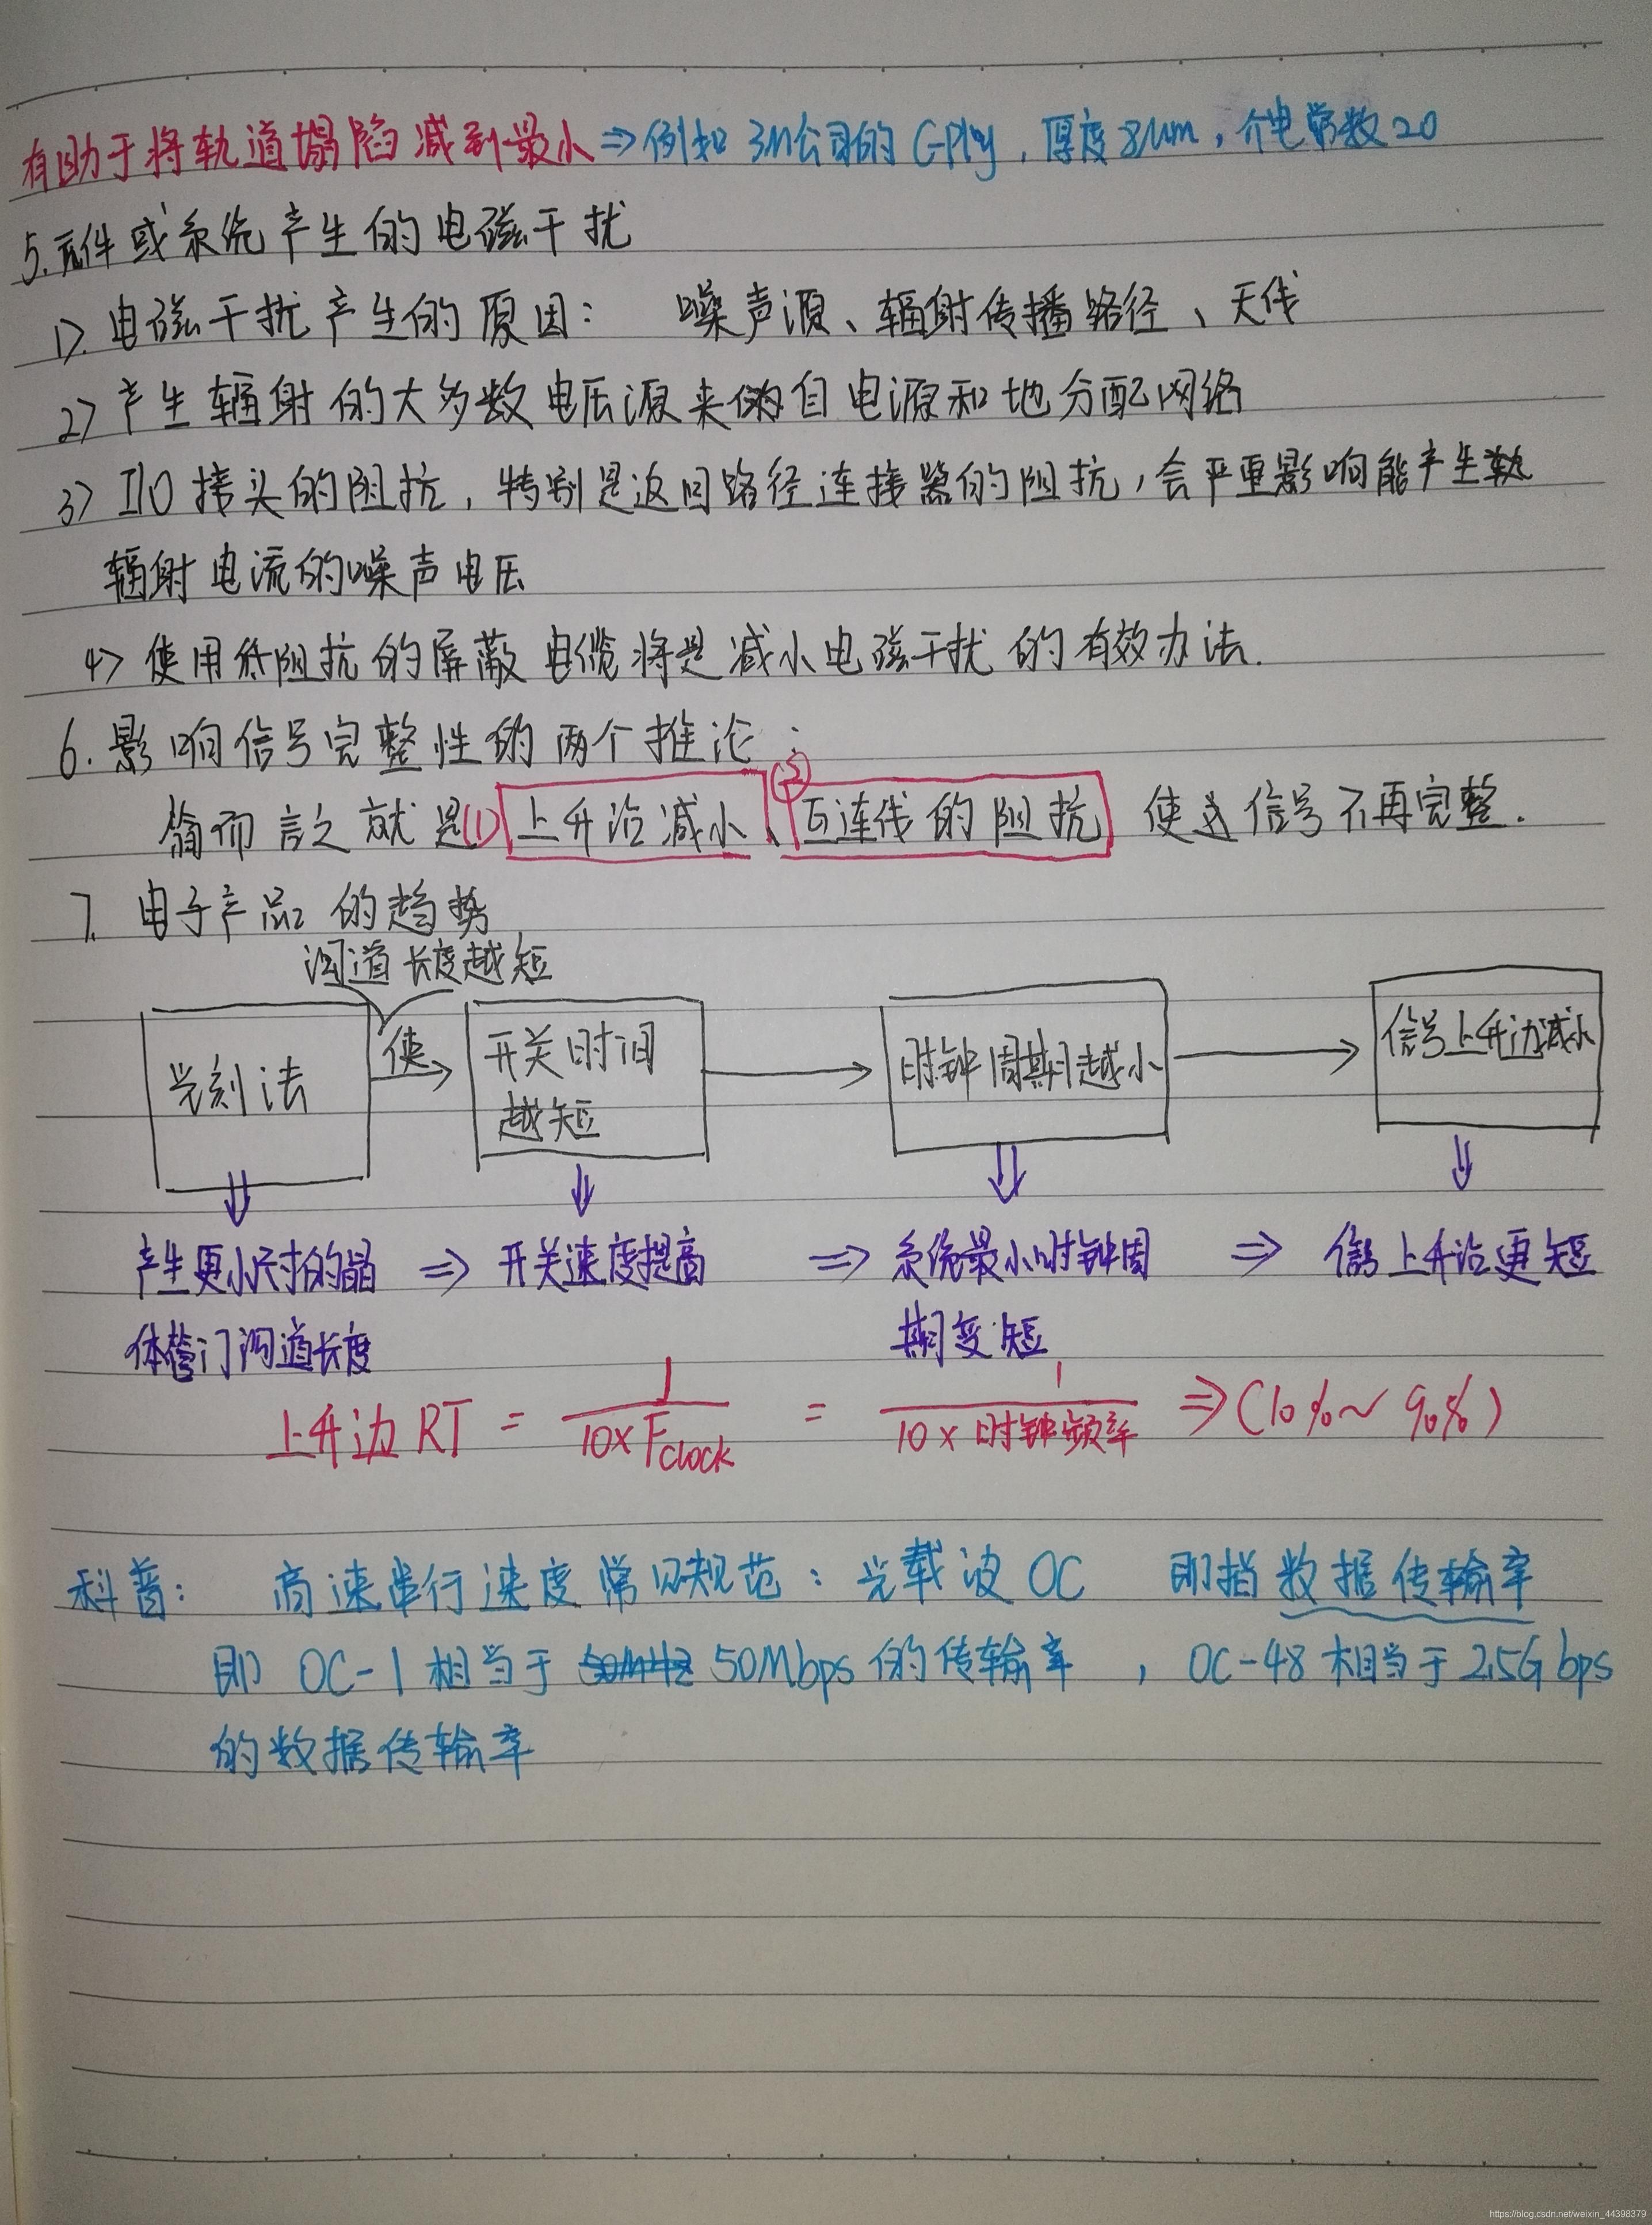 有助于将轨道塌陷减到最小⇒例如 3M公司的 C-Ply，厚度8um，介电常数20
5.元件或系统产生的电磁干扰
1>.电磁干扰产生的原因： 噪声源、辐射传播路径、天线
2>产生辐射的大多数电压源来自电源和地分配网络
3> I/O 接头的阻抗，特别是返回路径连接器的阻抗，会严重影响能产生
辐射电流的噪声电压
4>使用低阻抗的屏蔽电缆将是减小电磁干扰的有效办法.
6.影响信号完整性的两个推论：
简而言之就是(1)上升沿减小、(2)互连线的阻抗 使送信号不再完整.
7.电子产品的趋势
沟道长度越短
光刻法 使→ 开关时间越短 → 时钟周期越小 → 信号上升边减小
⇓ ⇓ ⇓ ⇓
产生更小尺寸的晶 ⇒ 开关速度提高 ⇒ 系统最小时钟周 ⇒ 信号上升沿更短
体管门沟道长度 期变短
上升边RT = 1/(10×Fclock) = 1/(10×时钟频率) ⇒(10%~90%)
科普： 高速串行速度常见规范：光载波OC 即指数据传输率
即 OC-1相当于 50MHz 50Mbps的传输率，OC-48相当于2.5Gbps
的数据传输率
https://blog.csdn.net/weixin_44398379